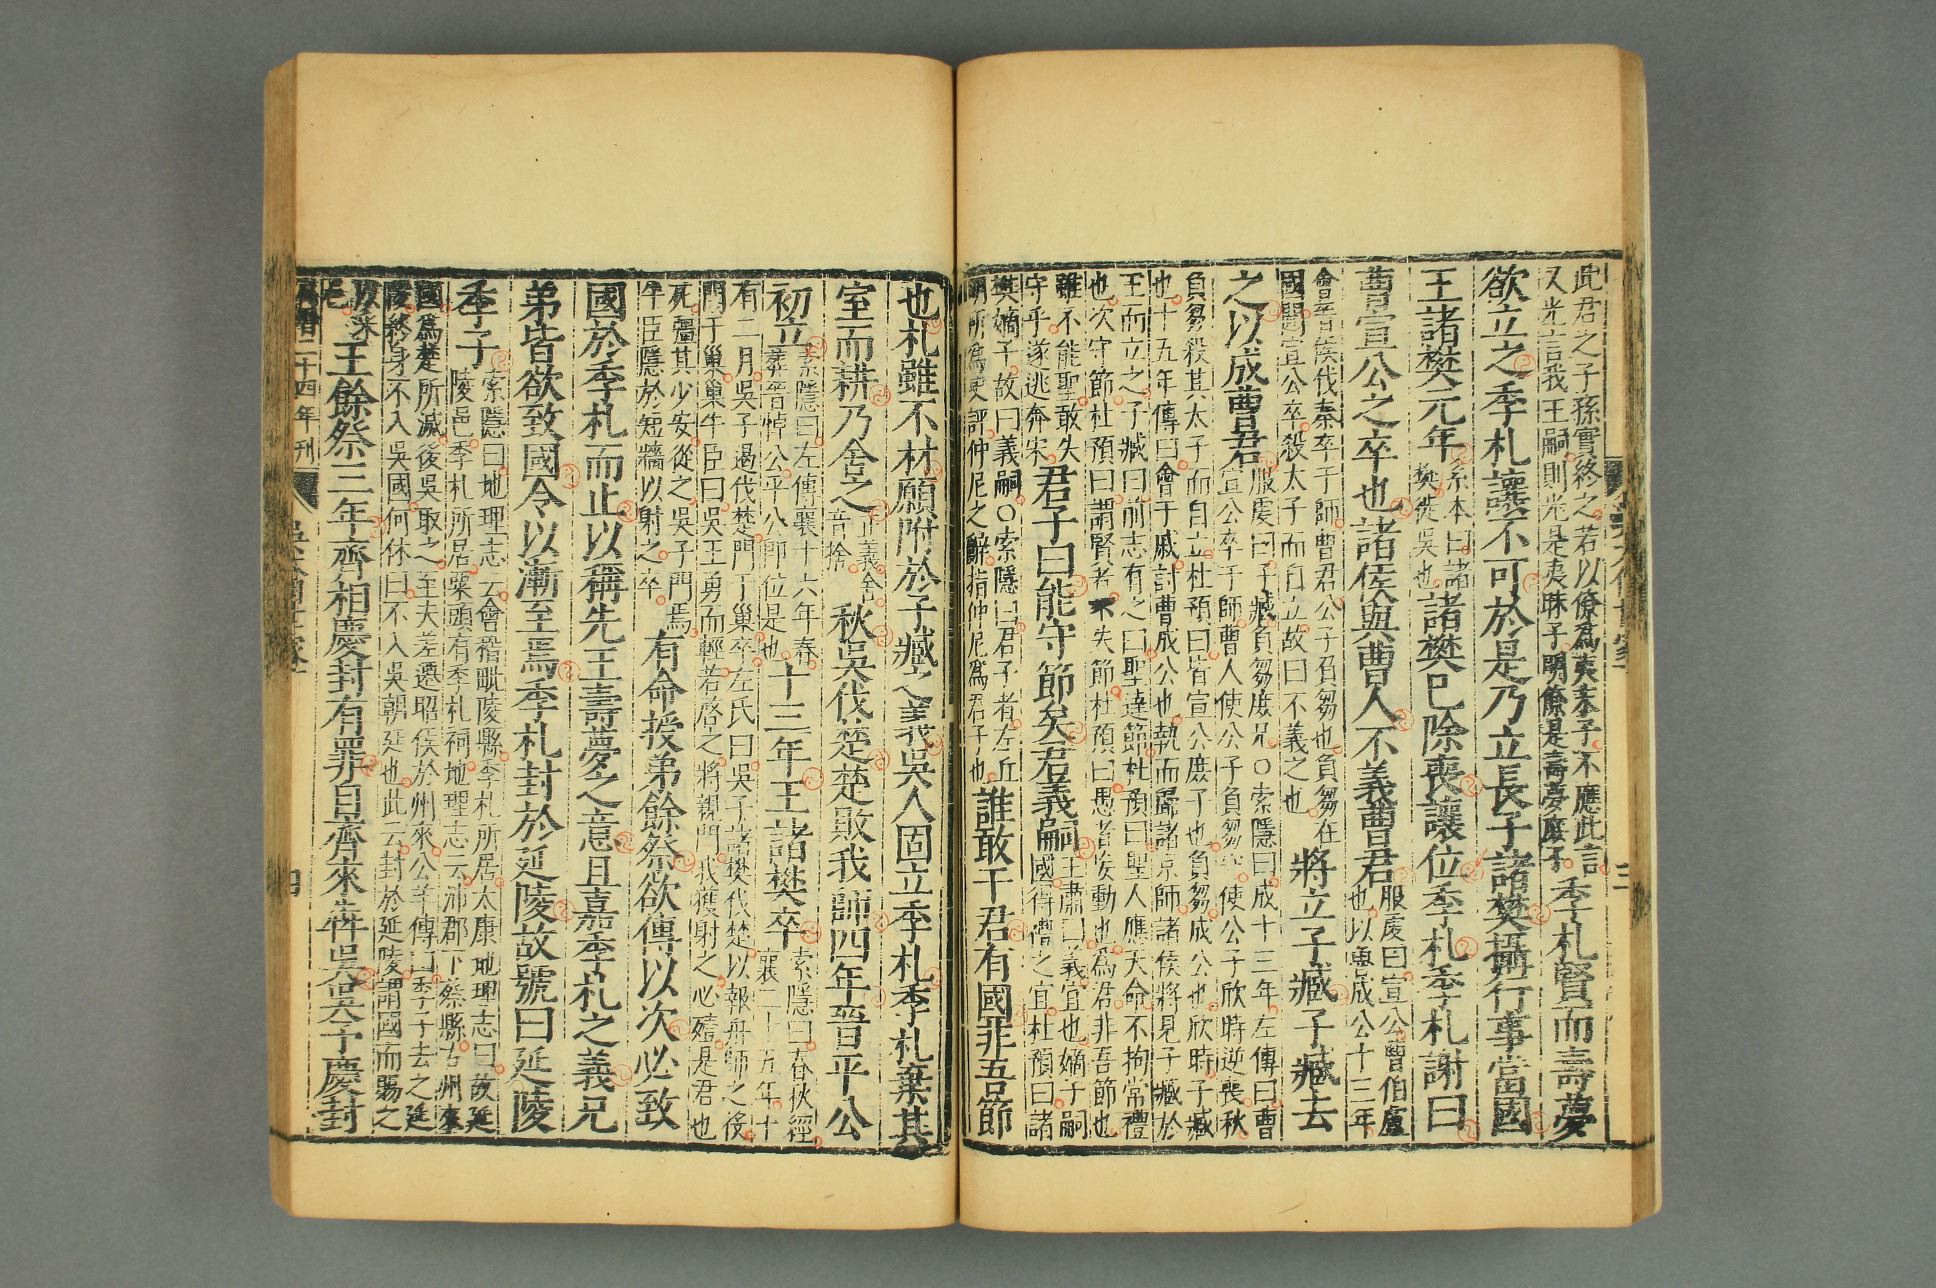 此君之子孫實終之若以僚爲夷末子不應此言
又光言我王嗣則光是夷昧子明僚是壽夢庶子
季札賢而壽夢
欲立之季札讓不可於是乃立長子諸樊攝行事當國
王諸樊元年
系本曰諸
樊徙吳也
諸樊已除喪讓位季札季札謝曰
曹宣公之卒也諸侯與曹人不義曹君
服虔曰宣公曹伯盧
也以魯成公十三年
會晉侯伐秦卒于師曹君公子負芻也負芻在
國聞宣公卒殺太子而自立故曰不義之也
將立子臧子臧去
之以成曹君
服虔曰子臧負芻庶兄○索隱曰成十三年左傳曰曹
宣公卒于師曹人使公子負芻守使公子欣時逆喪秋
負芻殺其太子而自立杜預曰皆宣公庶子也負芻成公也欣時子臧
也十五年傳曰會于戚討曹成公也執而歸諸京師諸侯將見子臧於
王而立之子臧曰前志有之曰聖達節杜預曰聖人應天命不拘常禮
也次守節杜預曰謂賢者下失節杜預曰愚者妄動也爲君非吾節也
雖不能聖敢失
守乎遂逃奔宋
君子曰能守節矣君義嗣
王肅曰義宜也嫡子嗣
國得禮之宜杜預曰諸
樊嫡子故曰義嗣○索隱曰君子者左丘
明所爲史評仲尼之辭指仲尼爲君子也
誰敢干君有國非吾節
也札雖不材願附於子臧之義吳人固立季札季札棄其
室而耕乃舍之
正義舍
音捨
秋吳伐楚楚敗我師四年晉平公
初立
索隱曰左傳襄十六年春
葬晉悼公平公即位是也
十三年王諸樊卒
索隱曰春秋經
襄二十五年十
有二月吳子遏伐楚門于巢卒左氏曰吳子諸樊伐楚以報舟師之役
門于巢巢牛臣曰吳王勇而輕若啓之將親門我獲射之必殪是君也
死疆其少安從之吳子門焉
牛臣隱於短牆以射之卒
有命授弟餘祭欲傳以次必致
國於季札而止以稱先王壽夢之意且嘉季札之義兄
弟皆欲致國令以漸至焉季札封於延陵故號曰延陵
季子
索隱曰地理志云會稽毗陵縣季札所居太康地理志曰故延
陵邑季札所居粟頭有季札祠地理志云沛郡下蔡縣古州來
國爲楚所滅後吳取之至夫差遷昭侯於州來公羊傳曰季子去之延
陵終身不入吳國何休曰不入吳朝廷也此云封於延陵謂國而賜之
王餘祭三年齊相慶封有罪自齊來犇吳吳予慶封
嘉靖二十四年刊
四
三